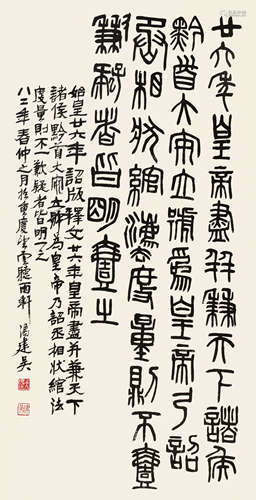 廿六年皇帝盡并兼天下諸侯
黔首大安立號為皇帝乃詔
丞相狀綰灋度量則不壹
歉疑者皆明壹之
始皇廿六年詔版釋文廿六年皇帝盡并兼天下
諸侯黔首大安立號為皇帝乃詔丞相狀綰法
度量則不一歉疑者皆明之
八二年春仲之月於重慶聽雨軒湯建吳